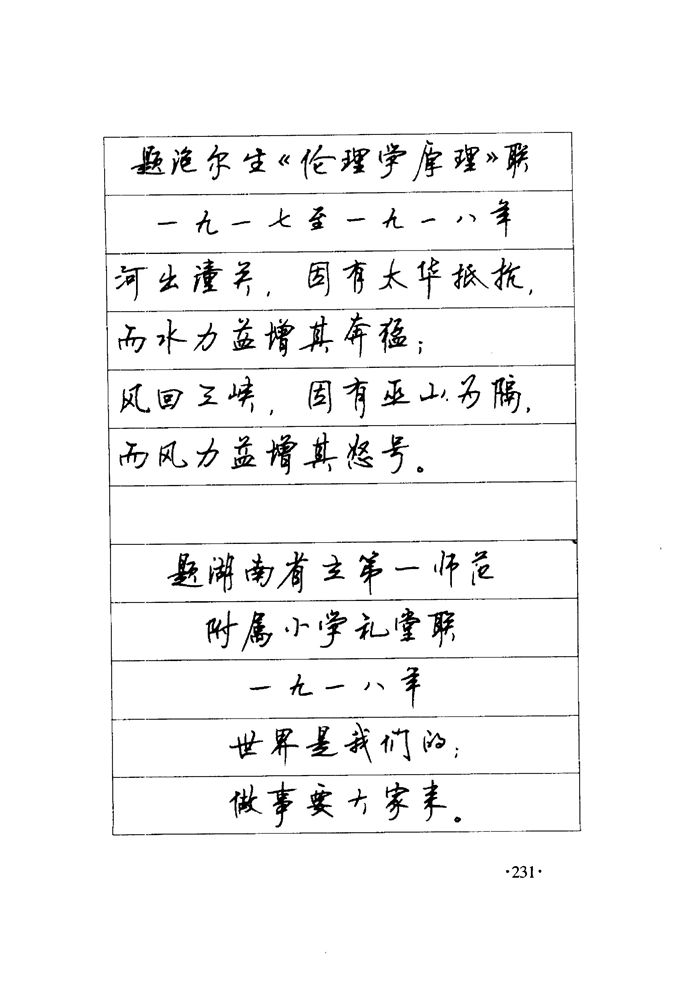 题泡尔生《伦理学原理》联
一九一七至一九一八年
河出潼关，因有太华抵抗，
而水力益增其奔猛；
风回三峡，因有巫山为隔，
而风力益增其怒号。
题湖南省立第一师范
附属小学礼堂联
一九一八年
世界是我们的；
做事要大家来。
·231·